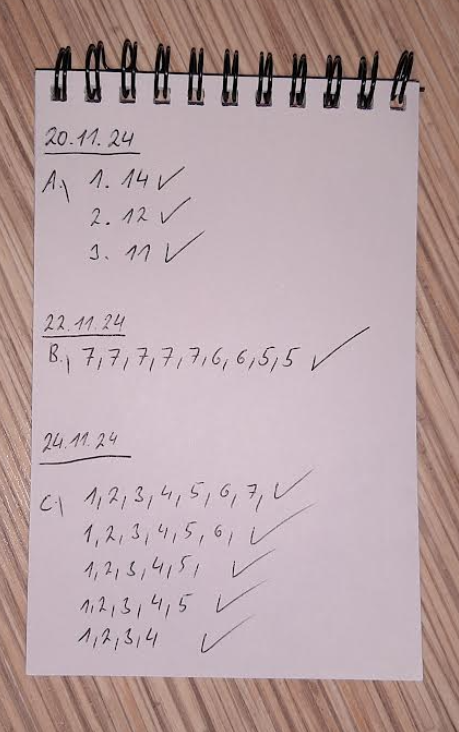 20.11.24
A.) 1. 14 ✓
2. 12 ✓
3. 11 ✓
22.11.24
B.) 7,7,7,7,7,6,6,5,5 ✓
24.11.24
C) 1,2,3,4,5,6,7, ✓
1,2,3,4,5,6, ✓
1,2,3,4,5, ✓
1,2,3,4,5 ✓
1,2,3,4 ✓